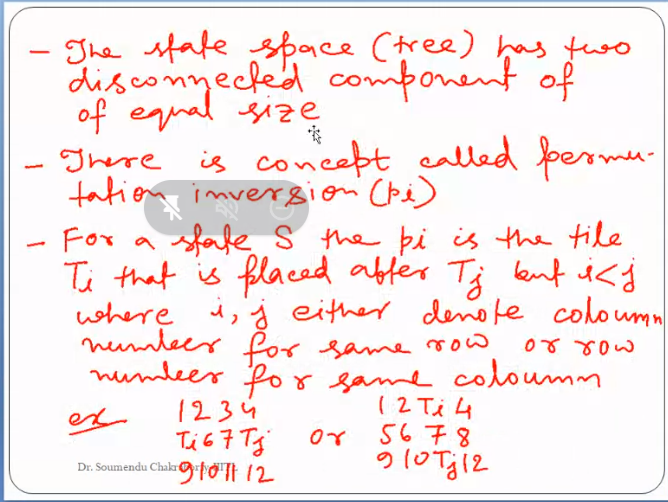 - The state space (tree) has two
disconnected component of
of equal size
- There is concept called permu-
tation inversion (pi)
- For a state S the pi is the tile
Ti that is placed after Tj but i<j
where i, j either denote coloumn
number for same row or row
number for same coloumn
ex 1 2 3 4 1 2 Ti 4
Ti 6 7 Tj or 5 6 7 8
9 10 11 12 9 10 Tj 12
Dr. Soumendu